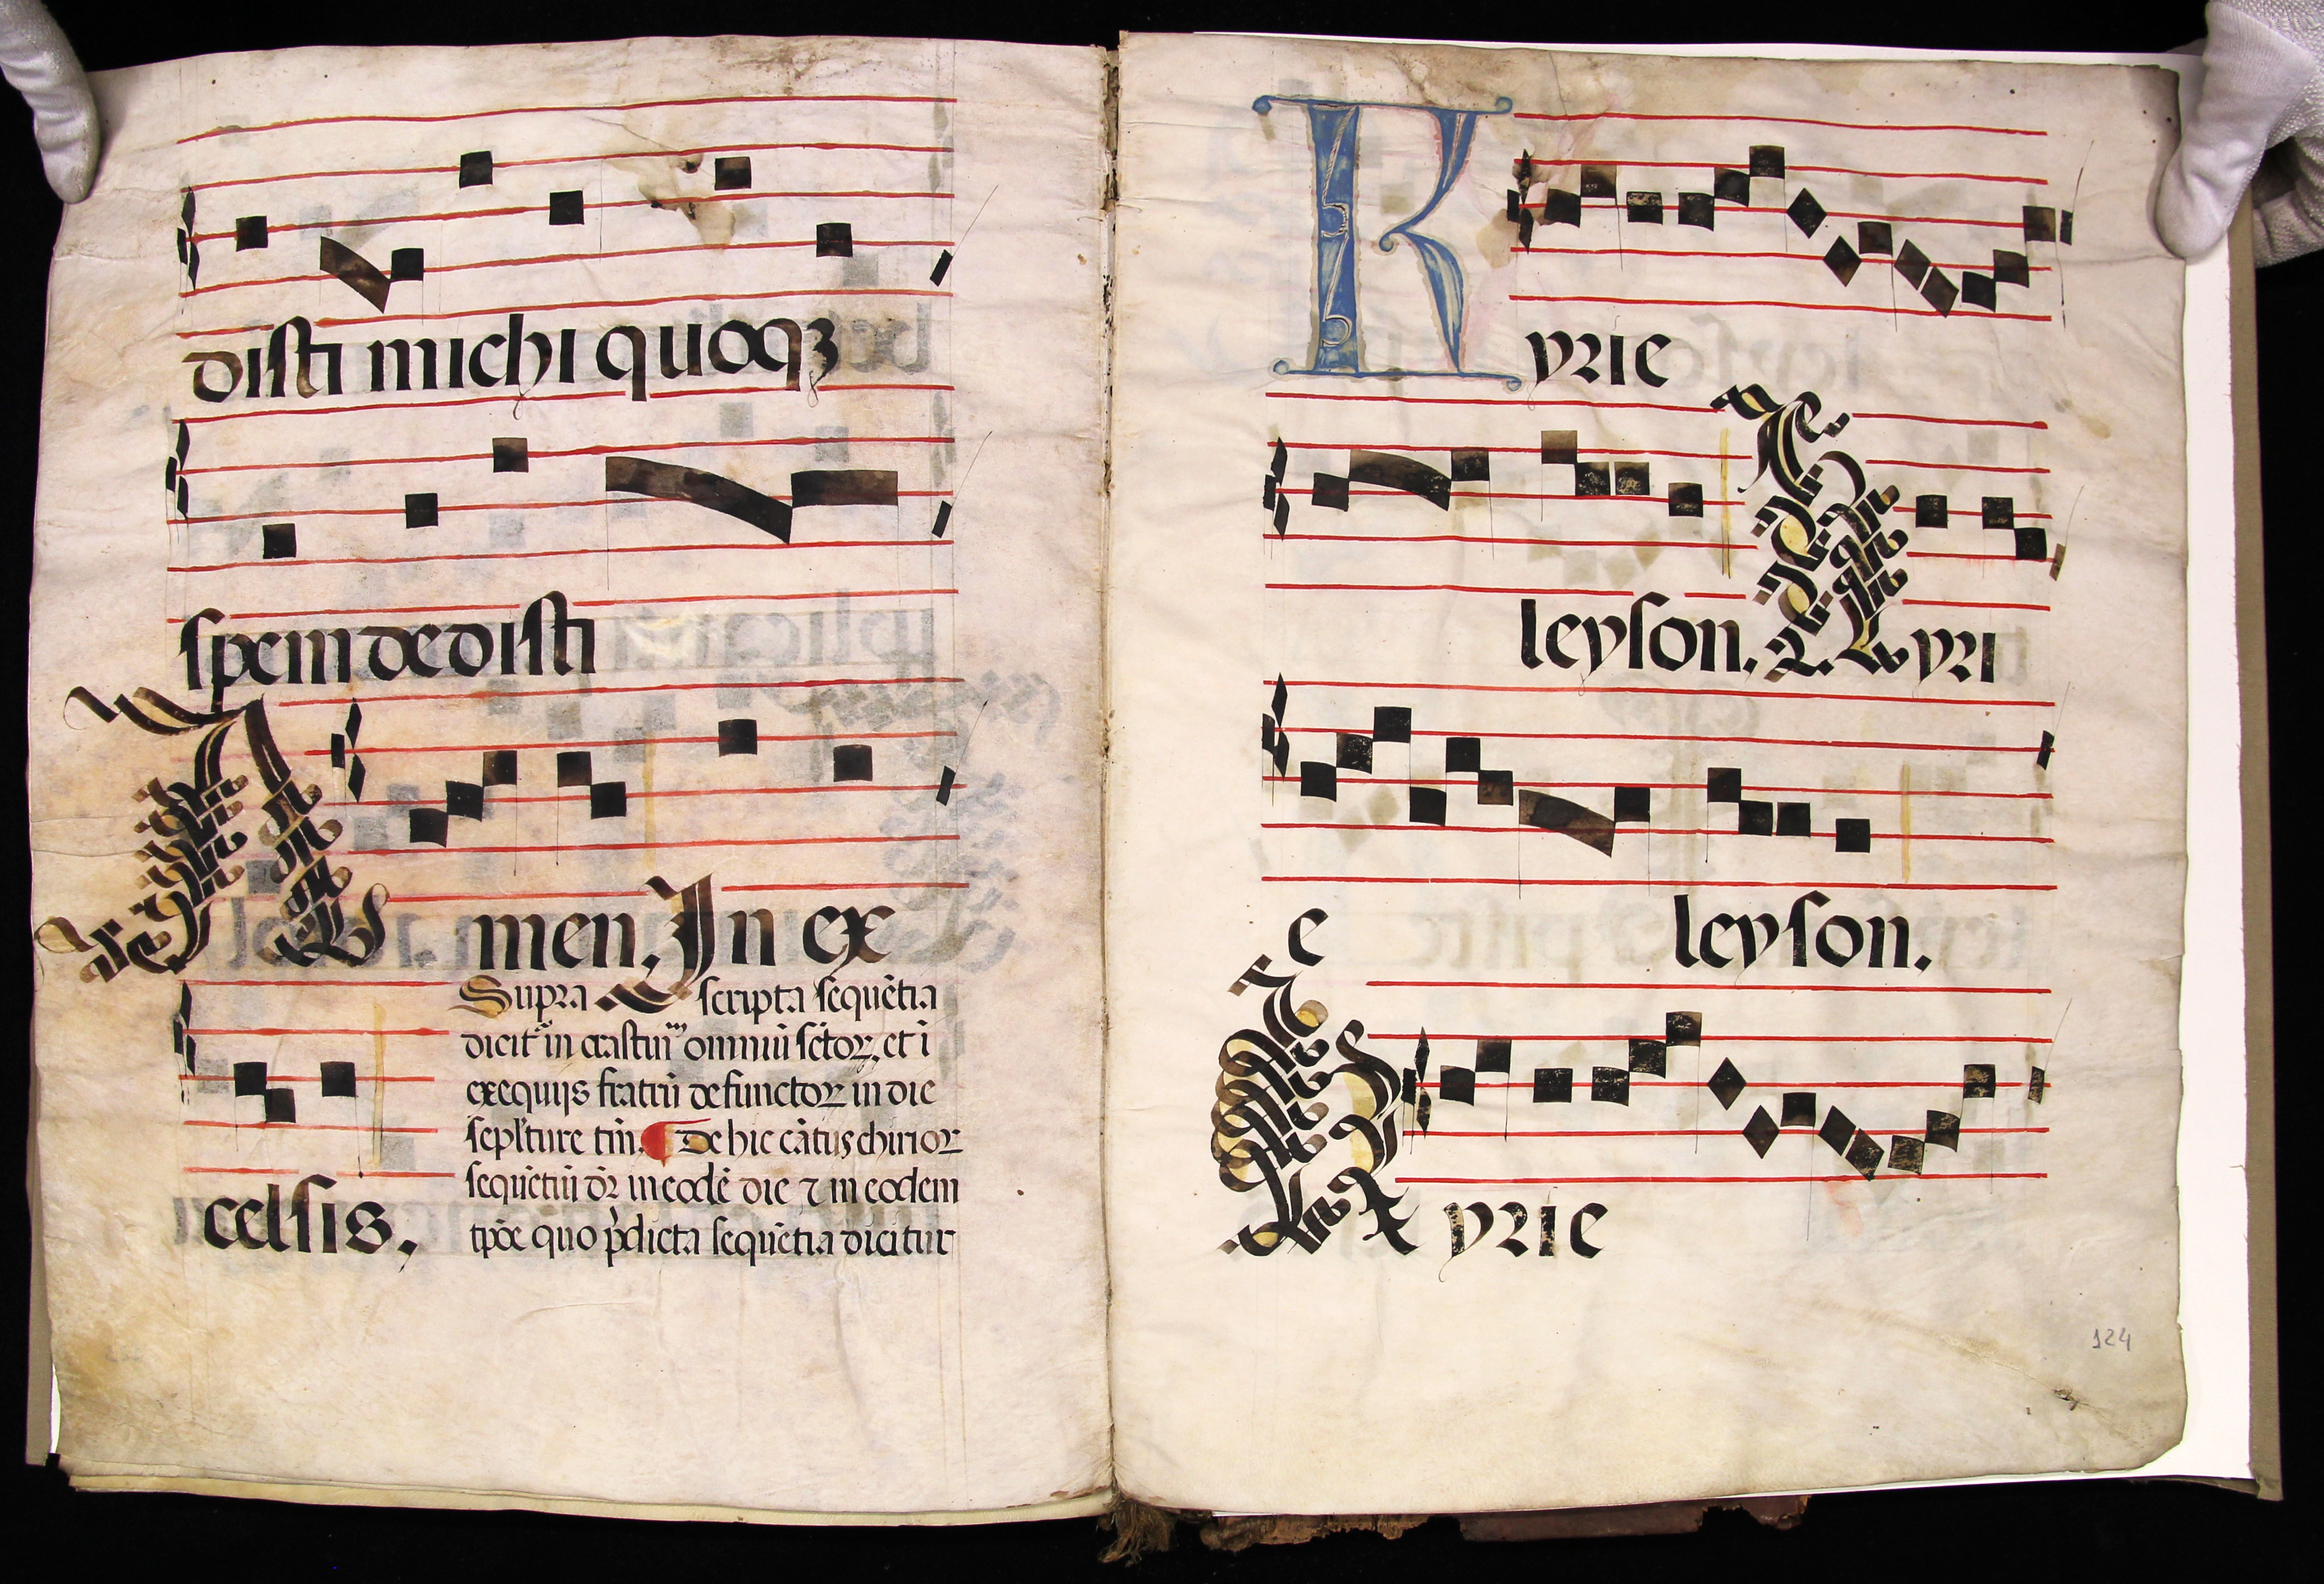 disti michi quoqꝫ
spem dedisti
Amen. In ex
Supra scripta sequētia
dicit in crastinū omniū sctōꝝ. et ī
exequijs fratrū defunctoꝝ in die
sepl'ture tm̄. De hic cātus chirioꝝ
sequētiū dr̄ in eodē die ⁊ in eodem
tp̄oe quo p̄dicta sequētia dicitur
celsis.
Kyrie
leyson. Kyri
e leyson.
Kyrie
124